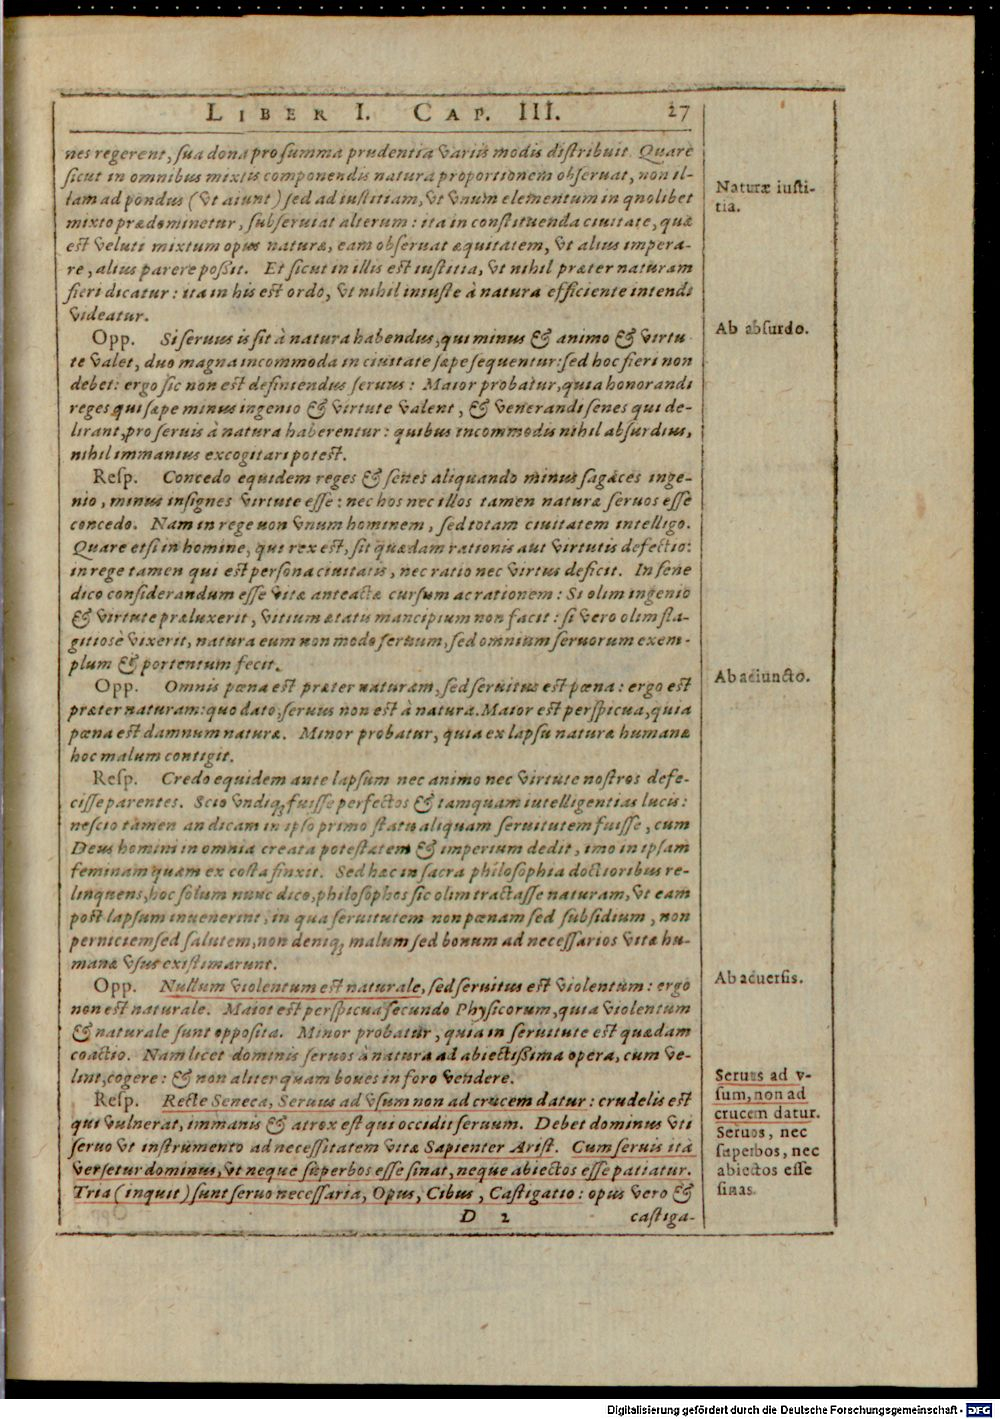 LIBER I. CAP. III. 27
nes regerent, sua dona pro summa prudentia variis modis distribuit. Quare
sicut in omnibus mixtis componendis natura proportionem obseruat, non il-
lam ad pondus (vt aiunt) sed ad iustitiam, vt vnum elementum in qnolibet
mixto prædominetur, subseruiat alterum: ita in constituenda ciuitate, quæ
est veluti mixtum opus naturæ, eam obseruat æquitatem, vt alius impera-
re, alius parere possit. Et sicut in illis est iustitia, vt nihil præter naturam
fieri dicatur: ita in his est ordo, vt nihil iniuste à natura efficiente intendi
videatur.
Naturæ iusti-
tia.
Opp. Si seruus is sit à natura habendus, qui minus & animo & virtu-
te valet, duo magna incommoda in ciuitate sæpe sequentur: sed hoc fieri non
debet: ergo sic non est definiendus seruus: Maior probatur, quia honorandi
reges qui sæpe minus ingenio & virtute valent, & venerandi senes qui de-
lirant, pro seruis à natura haberentur: quibus incommodis nihil absurdius,
nihil immanius excogitari potest.
Ab absurdo.
Resp. Concedo equidem reges & senes aliquando minus sagaces inge-
nio, minus insignes virtute esse: nec hos nec illos tamen naturæ seruos esse
concedo. Nam in rege non vnum hominem, sed totam ciuitatem intelligo.
Quare etsi in homine, qui rex est, sit quædam rationis aut virtutis defectio:
in rege tamen qui est persona ciuitatis, nec ratio nec virtus deficit. In sene
dico considerandum esse vitæ anteactæ cursum ac rationem: Si olim ingenio
& virtute præluxerit, vitium ætatis mancipium non facit: si vero olim fla-
gitiosè vixerit, natura eum non modo seruum, sed omnium seruorum exem-
plum & portentum fecit.
Opp. Omnis pœna est præter naturam, sed seruitus est pœna: ergo est
præter naturam: quo dato, seruus non est à natura. Maior est perspicua, quia
pœna est damnum naturæ. Minor probatur, quia ex lapsu naturæ humanæ
hoc malum contigit.
Ab adiuncto.
Resp. Credo equidem ante lapsum nec animo nec virtute nostros defe-
cisse parentes. Scio vndiq; fuisse perfectos & tamquam intelligentias lucis:
nescio tamen an dicam in ipso primo statu aliquam seruitutem fuisse, cum
Deus homini in omnia creata potestatem & imperium dedit, imo in ipsam
feminam quam ex costa finxit. Sed hæc in sacra philosophia doctioribus re-
linquens, hoc solum nunc dico, philosophos sic olim tractasse naturam, vt eam
post lapsum inuenerint, in qua seruitutem non pœnam sed subsidium, non
perniciem sed salutem, non deniq; malum sed bonum ad necessarios vitæ hu-
manæ vsus existimarunt.
Opp. Nullum violentum est naturale, sed seruitus est violentum: ergo
non est naturale. Maior est perspicua secundo Physicorum, quia violentum
& naturale sunt opposita. Minor probatur, quia in seruitute est quædam
coactio. Nam licet dominis seruos à natura ad abiectissima opera, cum ve-
lint, cogere: & non aliter quam boues in foro vendere.
Ab aduersis.
Resp. Recte Seneca, Seruus ad vsum non ad crucem datur: crudelis est
qui vulnerat, immanis & atrox est qui occidit seruum. Debet dominus vti
seruo vt instrumento ad necessitatem vitæ Sapienter Arist. Cum seruis ita
versetur dominus, vt neque superbos esse sinat, neque abiectos esse patiatur.
Tria (inquit) sunt seruo necessaria, Opus, Cibus, Castigatio: opus vero &
Seruus ad v-
sum, non ad
crucem datur.
Seruos, nec
superbos, nec
abiectos esse
sinas.
D 2 castiga-
Digitalisierung gefördert durch die Deutsche Forschungsgemeinschaft - DFG